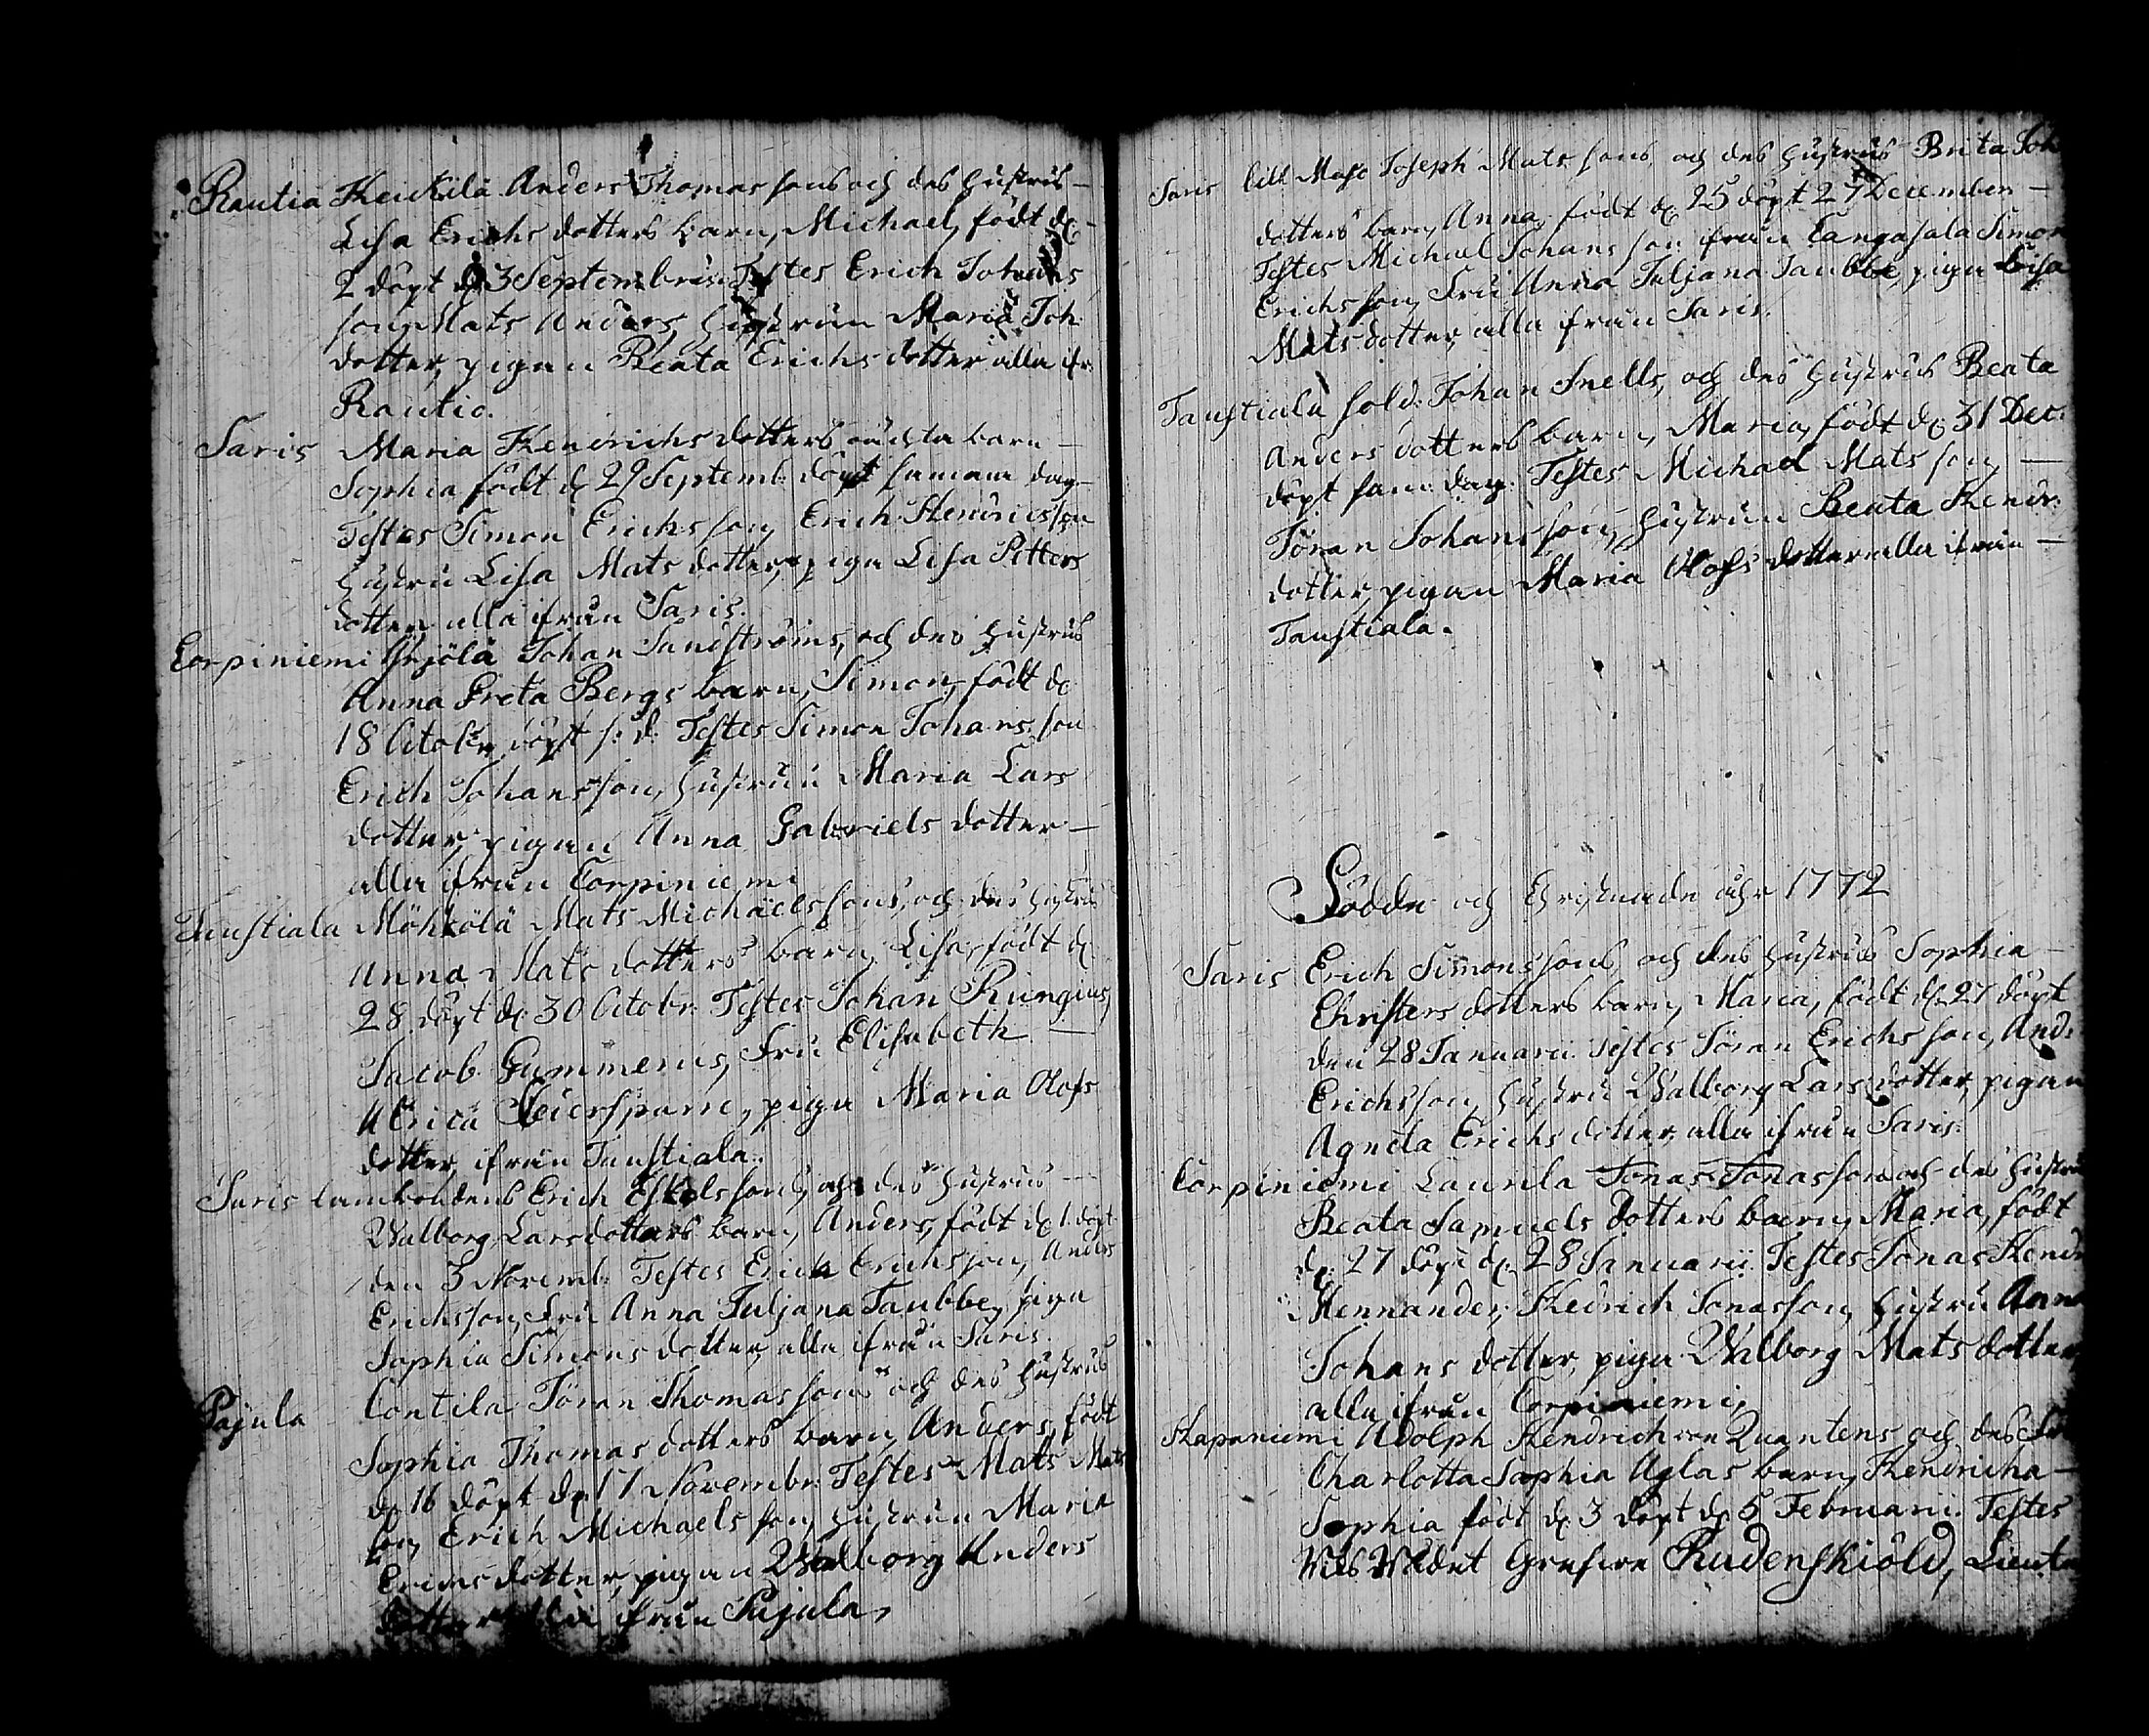 Rautia Heickilä Anders Thomas sons och des hustrus
Lisa Erichs dotters barn, Michael, födt d.
2 döpt d. 3 Septembris. Testes Erich Johans
son, Mats Anders, hustrun Maria Joh:
dotter, pigan Beata Erichs dotter alla ifr.
Rautio.
Saris Maria Hendrichs dotters oächta barn
Sophia födt d. 29 Septemb: döpt samma dag
Testes Simon Erichs son, Erich Hendricsson
hustru Lisa Mats dotter, piga Lisa Petters
dotter alla ifrån Saris.
Corpiniemi Johan Sandströms, och des hustrus
Anna Greta Bergs barn, Simon, födt d.
18 Octobr, döpt s: d: Testes Simon Johans son
Erich Johansson, hustrun Maria Lars
dotter, pigan Anna Gabriels dotter
alla ifrån Corpiniemi
Taustiala Möhkölä Mats Michaels sons, och des hustrus
Anna Mats dotters barn, Lisa, födt d.
28 döpt d. 30 Octobr. Testes Johan Rungius,
Jacob Gummerus, Fru Elisabeth
Ulrica piga Maria Olofs
dotter, ifrån Taustiala.
Saris lambondens Erich Eskels sons, och des hustrus
Walborg Larsdotters barn, Anders, födt d. 1. döpt
den 3 Novemb. Testes Erich Erichsson, Anders
Erichsson, Fru Anna Juljana Taubbe, piga
Sophia Simons dotter, alla ifrån Saris.
Pajula Contila Jöran Thomas sons och des hustrus
Sophia Thomas dotters barn, Anders, födt
d. 16 döpt d. 17 Novembr. Testes Mats Mats
son, Erich Michaels son, hustrun Maria
Erichs dotter, pigan Walborg Anders
dotter alla ifrån Pajula,
Saris Joseph Mats sons, och des hustrus Brita Joh
dotters barn, Anna, födt d. 25 döpt 27 December
Testes Michael Johans son från Cangasala Simon
Erichsson, Fru Anna Juljana Taubbe, piga Lisa
Mats dotter, alla från Saris.
Taustiala sold: Johan Snells, och des hustrus Beata
Anders dotters barn, Maria, födt d. 31 Dec:
döpt sam: dag. Testes Michael Mats son,
Jöran Johans son, hustrun Beata Hendr:
dotter, pigan Maria Olofs dotter alla ifrån
Taustiala.
Födde och Christnade åhr 1772
Saris Erich Simons sons, och des hustrus Sophia
Christers dotters barn, Maria, födt d. 27 döpt
den 28 Januarii. Testes Jöran Erichs son, And:
Erichsson, hustru Walborg Lars dotter, pigan
Agneta Erichs dotter, alla ifrån Saris.
Corpiniemi Laurila Jonas Jonassons och des hustrus
Beata Samuels dotters barn, Maria, födt
d. 27 döpt d. 28 Januarii. Testes Jonas Hendr
Mennander, Hedrich Jonasson, hustru Anna
Johans dotter, piga Walborg Mats dotter
alla ifrån Corpiniemi,
Hapaniemi Adolph Hendrich von Quantens och des Fru
Charlotta Sophia Uglas barn, Hendricha
Sophia födt d. 3 döpt d. 5 Februarii. Testes
Grefven Rudenskiöld, Lieute